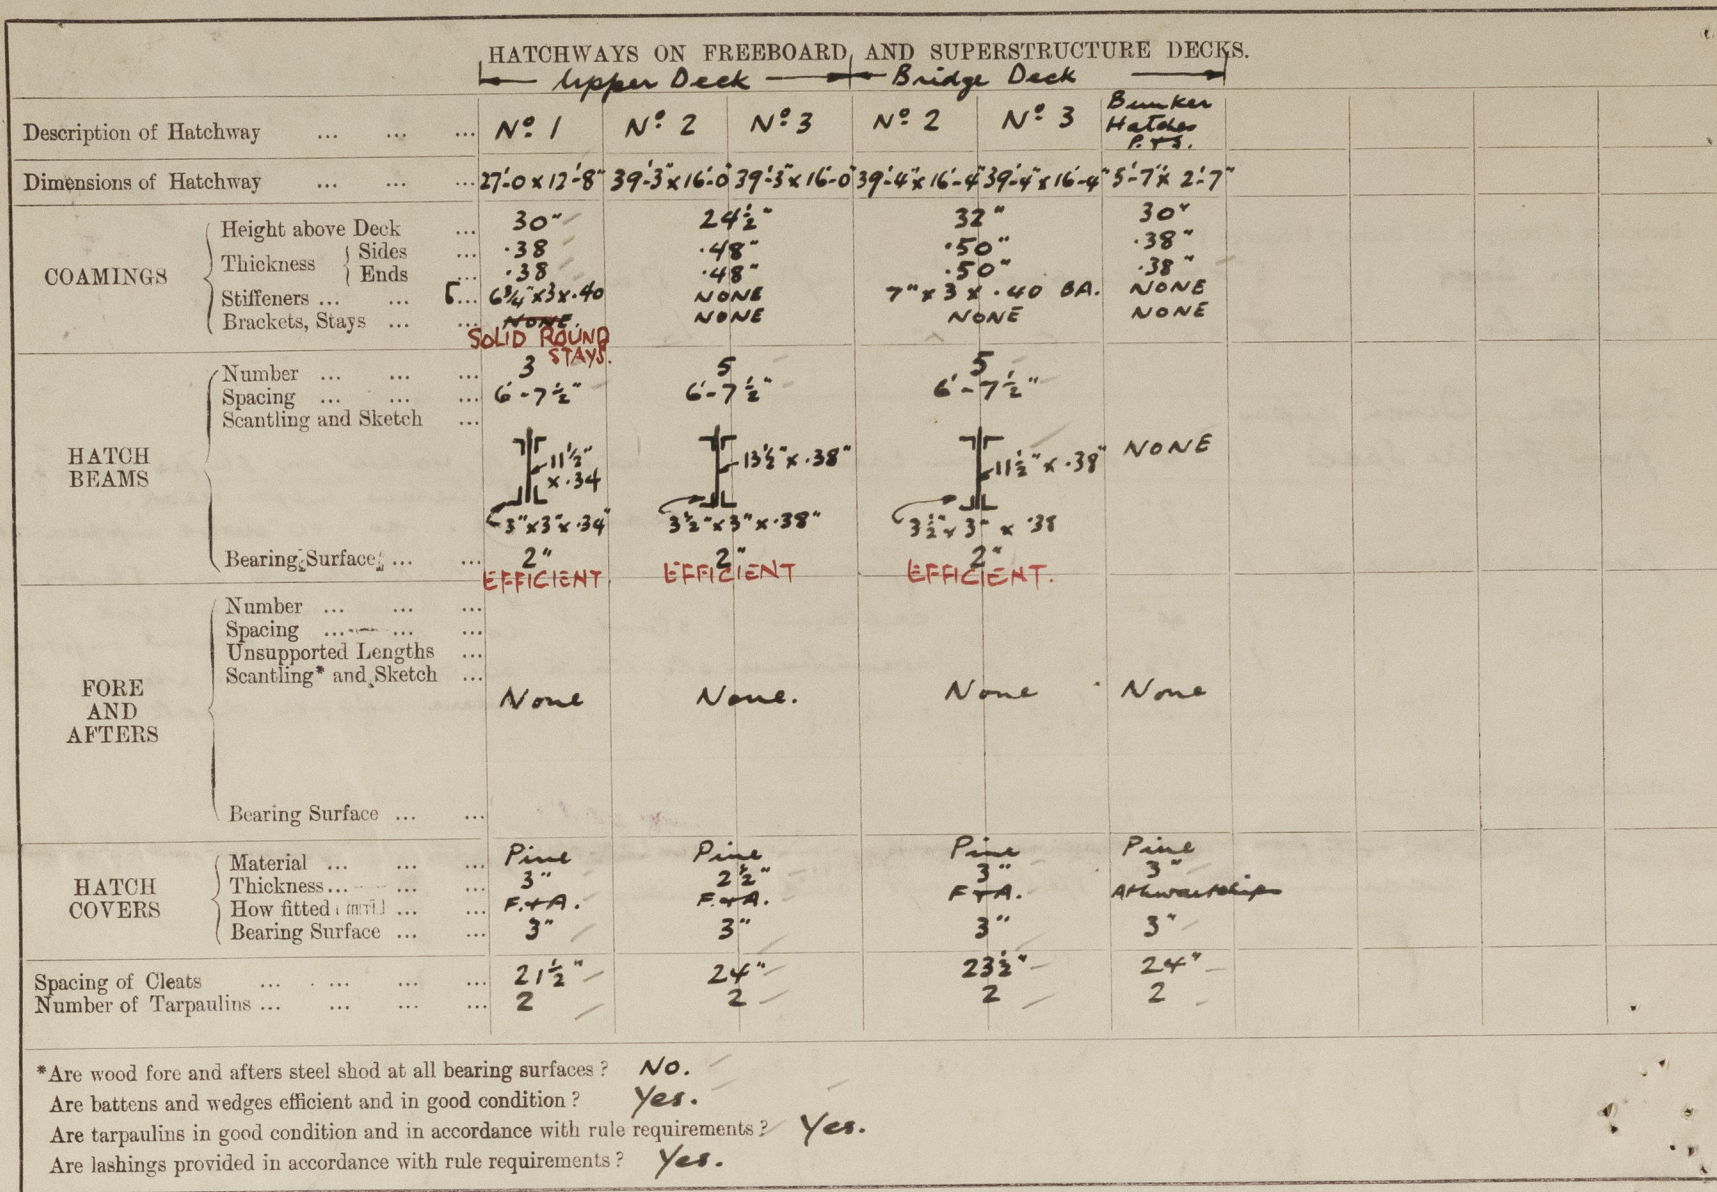 HATCHWAYS ON FREEBOARD AND SUPERSTRUCTURE DECKS.
Upper Deck Bridge Deck
Description of Hatchway ... ... ... Nº 1 Nº 2 Nº 3 Nº 2 Nº 3 Bunker Hatches P. & S.
Dimensions of Hatchway ... ... ... 27'-0 x 12'-8" 39'-3" x 16'-0 39'-3" x 16'-0 39'-4" x 16'-4" 39'-4" x 16'-4" 5'-7" x 2'-7"
COAMINGS
Height above Deck ... 30" 24½" 32" 30"
Thickness Sides ... .38 .48" .50" .38"
Ends ... .38 .48" .50" .38"
Stiffeners ... ... ... 6¾" x 3 x .40 NONE 7" x 3 x .40 BA. NONE
Brackets, Stays ... ... NONE. NONE NONE NONE
SOLID ROUND STAYS.
HATCH BEAMS
Number ... ... ... 3 5 5
Spacing ... ... ... 6'-7½" 6'-7½" 6'-7½"
Scantling and Sketch ...
11½" x .34 13½" x .38" 11½" x .38" NONE
3" x 3" x .34" 3½" x 3" x .38" 3½" x 3" x .38
Bearing Surface ... ... 2" 2" 2"
EFFICIENT EFFICIENT EFFICIENT.
FORE AND AFTERS
Number ... ... ...
Spacing ... ... ...
Unsupported Lengths ...
Scantling* and Sketch ...
None None. None None
Bearing Surface ... ...
HATCH COVERS
Material ... ... ... Pine Pine Pine Pine
Thickness ... ... ... 3" 2½" 3" 3"
How fitted ... ... F. & A. F. & A. F & A. Athwartships
Bearing Surface ... ... 3" 3" 3" 3"
Spacing of Cleats ... ... ... ... 21½" 24" 23½" 24"
Number of Tarpaulins ... ... ... ... 2 2 2 2
*Are wood fore and afters steel shod at all bearing surfaces? No.
Are battens and wedges efficient and in good condition? Yes.
Are tarpaulins in good condition and in accordance with rule requirements? Yes.
Are lashings provided in accordance with rule requirements? Yes.